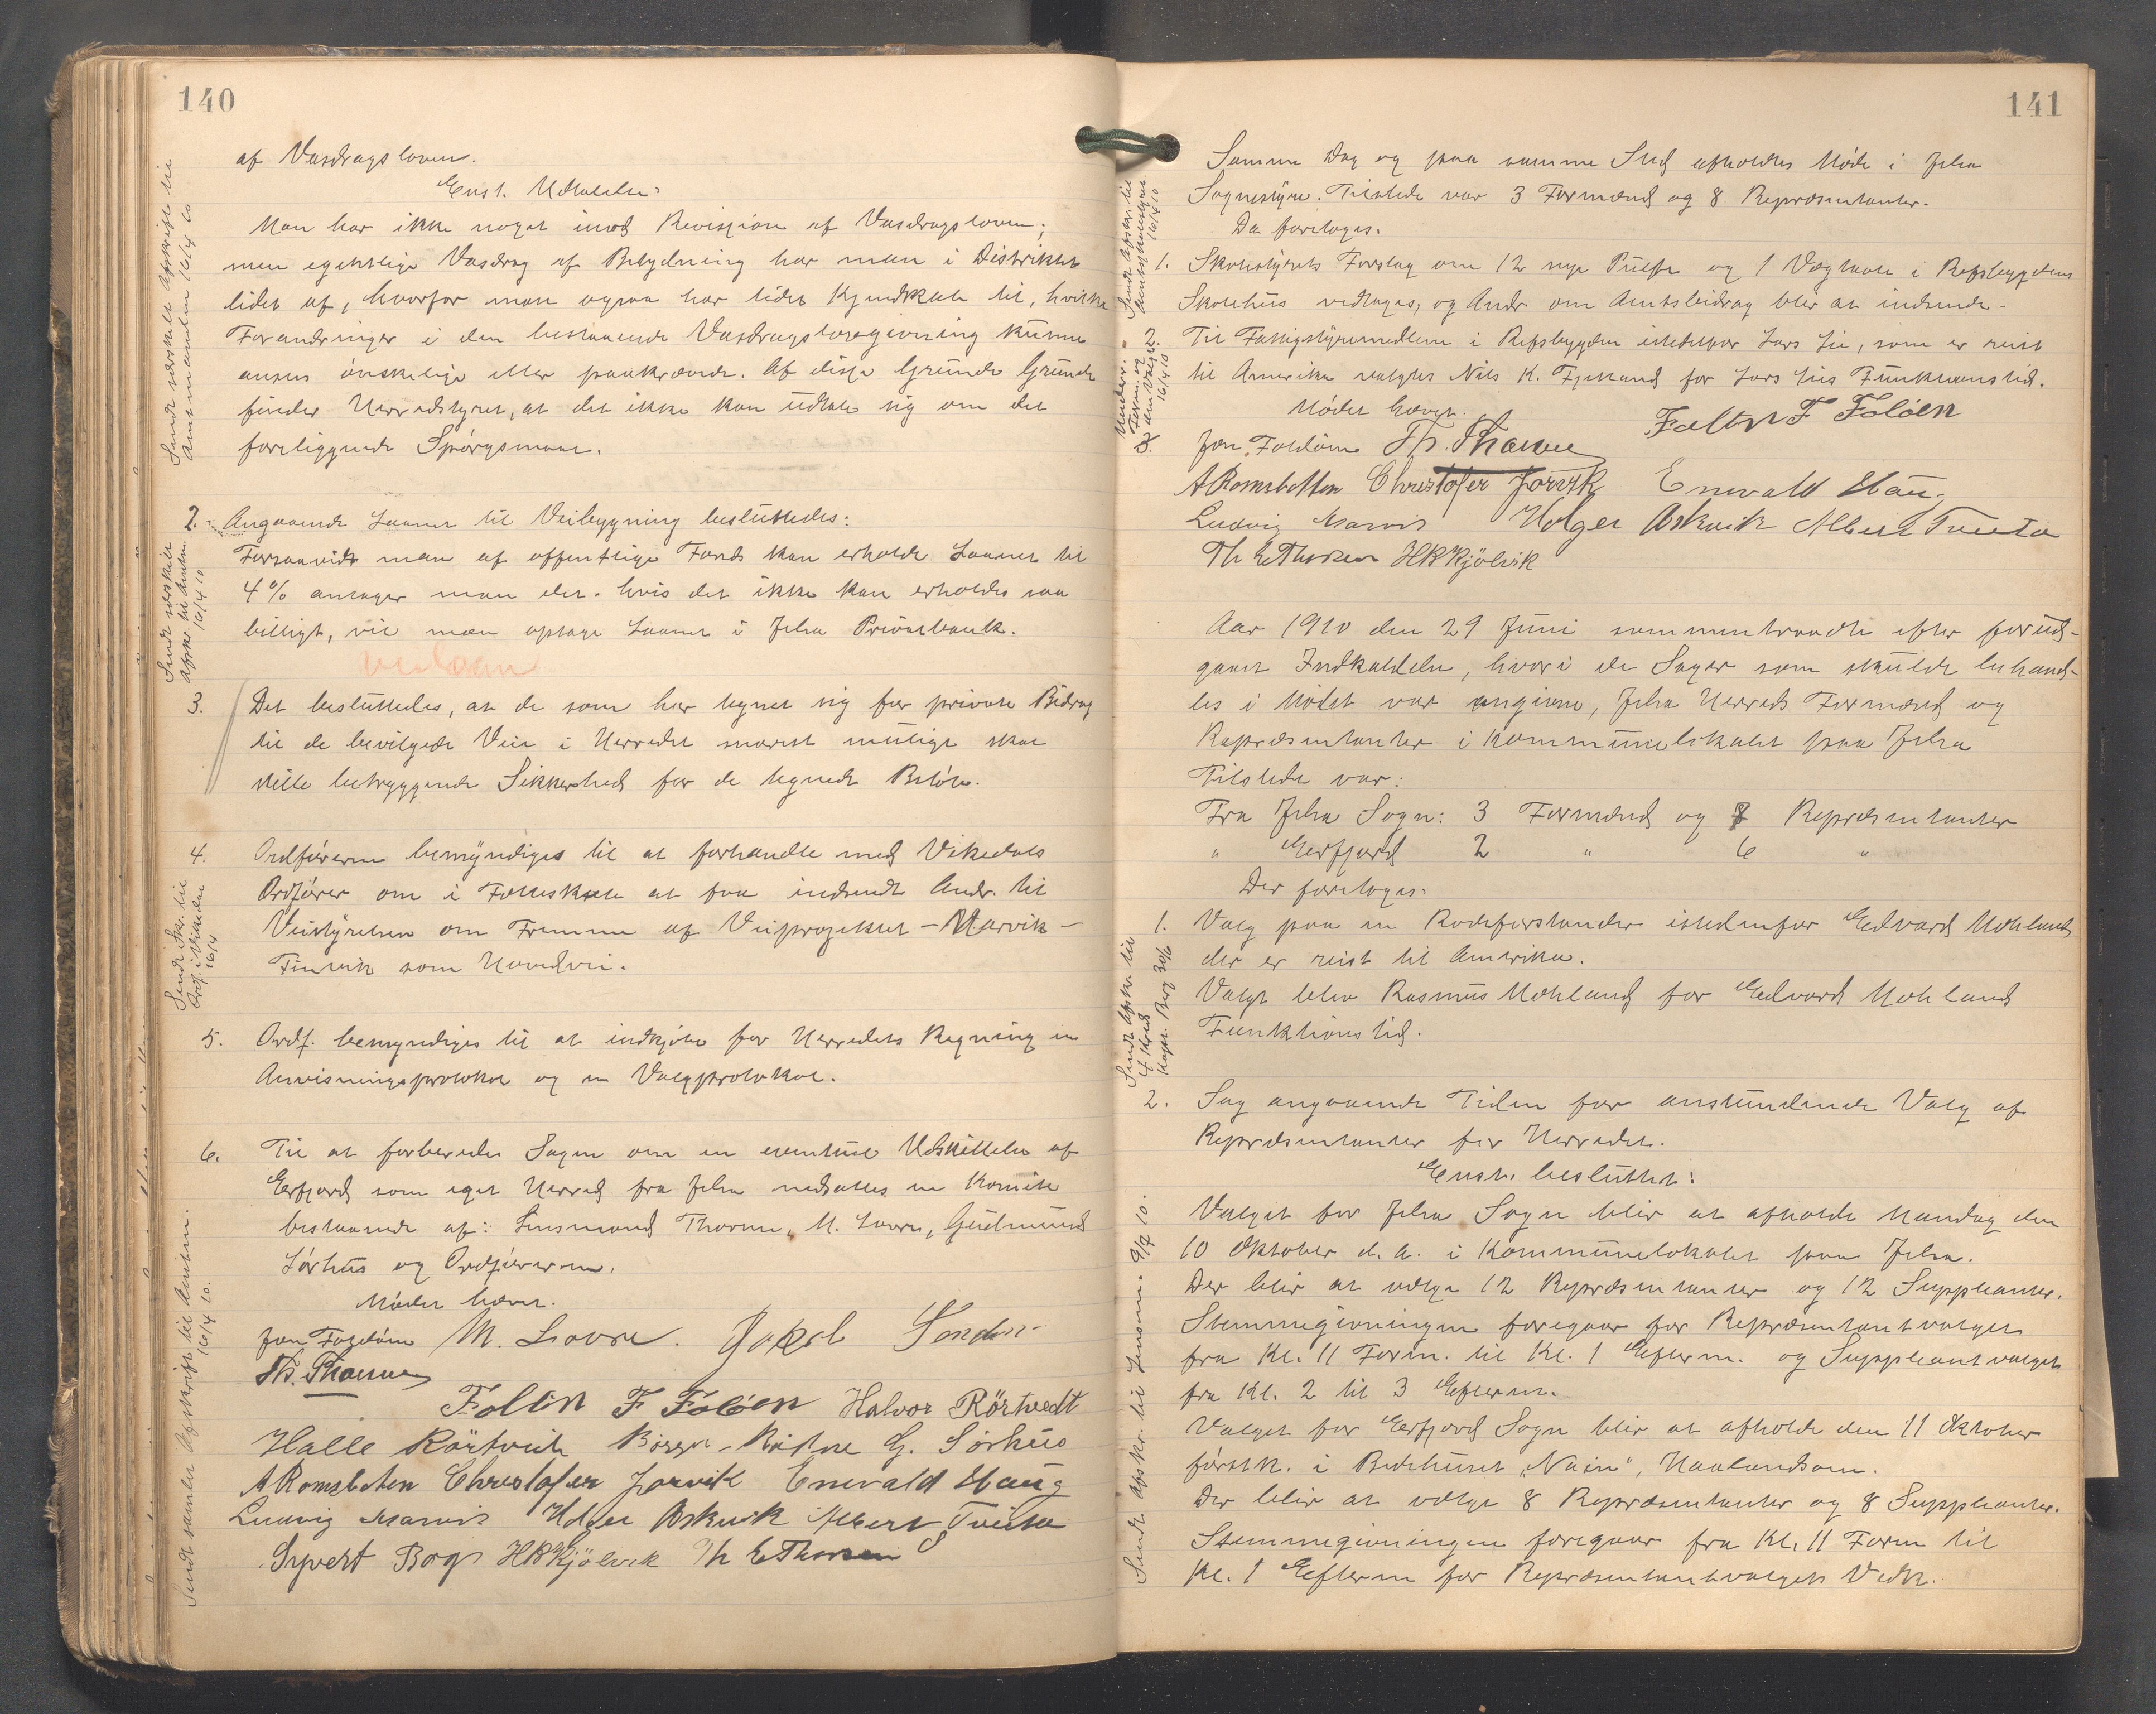 140
af Vasdragsloven.
Enst. Udtalelse:
Man har ikke noget imod Revisjion af Vasdragsloven;
men egentlige Vasdrag af Betydning har man i Distriktet
lidet af, hvorfor man ogsaa har lidet Kjendskab til, hvilke
Forandringer i den bestaaende Vasdragslovgivning kunne
ansees ønskelige eller paakrævede. Af disse Grunde Grunde
finder Herredstyret, at det ikke kan udtale sig om det
foreliggende Spørgsmaal.
Sendt særskilt Afskrift til
Amtmanden 16/4 10
2. Angaaende Laanet til Veibygning besluttedes:
Forsaavidt man af offentlige Fonds kan erholde Laanet til
4% antager man det. hvis det ikke kan erholdes saa
billigt, vil man optage Laanet i Jelsa Privatbank.
Sendt særskilt
Afskr. til Amtm.
16/4 10
veilaan
3. Det besluttedes, at de som har tegnet sig for private Bidrag
til de bevilgede Veie i Herredet snarest muligt skal
stille betryggende Sikkerhed for de tegnede Beløb.
4. Ordføreren bemyndiges til at forhandle med Vikedals
Ordfører om i Fælleskab at faa indsendt Andr. til
Veistyrelsen om Fremme af Veiprojektet - Marvik -
Finvik som Hovedvei.
Sendt Skr. til
Ordf. i Vikedal
16/4
5. Ordf. bemyndiges til at indkjøbe for Herredets Regning en
Anvisningsprotokol og en Valgprotokol.
6. Til at forberede Sagen om en eventuel Udskillelse af
Erfjord som eget Herred fra Jelsa nedsattes en Komite
bestaaende af: Lensmand Thorsen, M. Lovra, Gudmund
Sørhus og Ordføreren.
Mødet hævet.
Sendt samlet Afskrift til Amtm.
16/4 10.
Jon Foldøen M. Lovra. Jakob Sanden
Th. Thorsen
Falten F Foløen Halvor Rörtvedt
Halle Rörtveit G. Sörhus
A Romsbotten Christofer Jorvik Enevald Haug
Ludvig Marvik Holger Askvik Albert Tveita
Syvert Borg HBKjölvik Th E Thorsen
141
Samme Dag og paa samme Sted afholdtes Møde i Jelsa
Sognestyre. Tilstede var 3 Formænd og 8 Repræsentanter.
Da foretoges.
1. Skolestyrets Forslag om 12 nye Pulte og 1 Vægtavle i Refsbygdens
Skolehus vedtoges, og Andr om Amtsbidrag bler at indsende.
2. Til Fattigstyremedlem i Refsbygden istedetfor Lars Lie, som er reist
til Amerika valgtes Nils K. Fjelland for Lars Lies Funktionstid.
3. Mødet hævet.
Sendt Afskr. til
Amtsskolestyret
16/4 10
16/4 10
Falten F Foløen
Jon Foldöen Th. Thorsen
A Romsbotten Christofer Jorvik Enevald Haug
Ludvig Marvik Holger Askvik Albert Tveita
Th E Thorsen HBKjölvik
Aar 1910 den 29 Juni sammentraadte efter forud-
gaaet Indkaldelse, hvori de Sager som skulde behand-
les i Mødet var angivne, Jelsa Herreds Formænd og
Repræsentanter i Kommunelokalet paa Jelsa
Tilstede var:
Fra Jelsa Sogn: 3 Formænd og 7 Repræsentanter
" Erfjord 2 " 6 "
Der foretoges:
1. Valg paa en Rodeforstander istedenfor Edvard Mehland
der er reist til Amerika.
Valgt blev Rasmus Mehland for Edvard Mehlands
Funktionstid.
Sendt Afskr til
Kapt. Berg 30/6
2. Sag angaaende Tiden for anstundende Valg af
Repræsentanter for Herredet.
Enst. besluttet:
Valget for Jelsa Sogn blir at afholde Mandag den
10 Oktober d. A. i Kommunelokalet paa Jelsa.
Der blir at vælge 12 Repræsentanter og 12 Suppleanter.
Stemmegivningen foregaar for Repræsentantvalget
fra Kl. 11 Form. til Kl. 1 Efterm. og Suppleantvalget
fra Kl. 2 til 3 Efterm.
Valget for Erfjord Sogn blir at afholde den 11 Oktober
førstk. i Bedehuset „Nain", Haalandsosen.
Der blir at vælge 8 Repræsentanter og 8 Suppleanter.
Stemmegivningen foregaar fra Kl. 11 Form til
Kl. 1 Efterm for Repræsentantvalgets Vedk.
Sendt Afskr. til Lensm. 9/9 10.